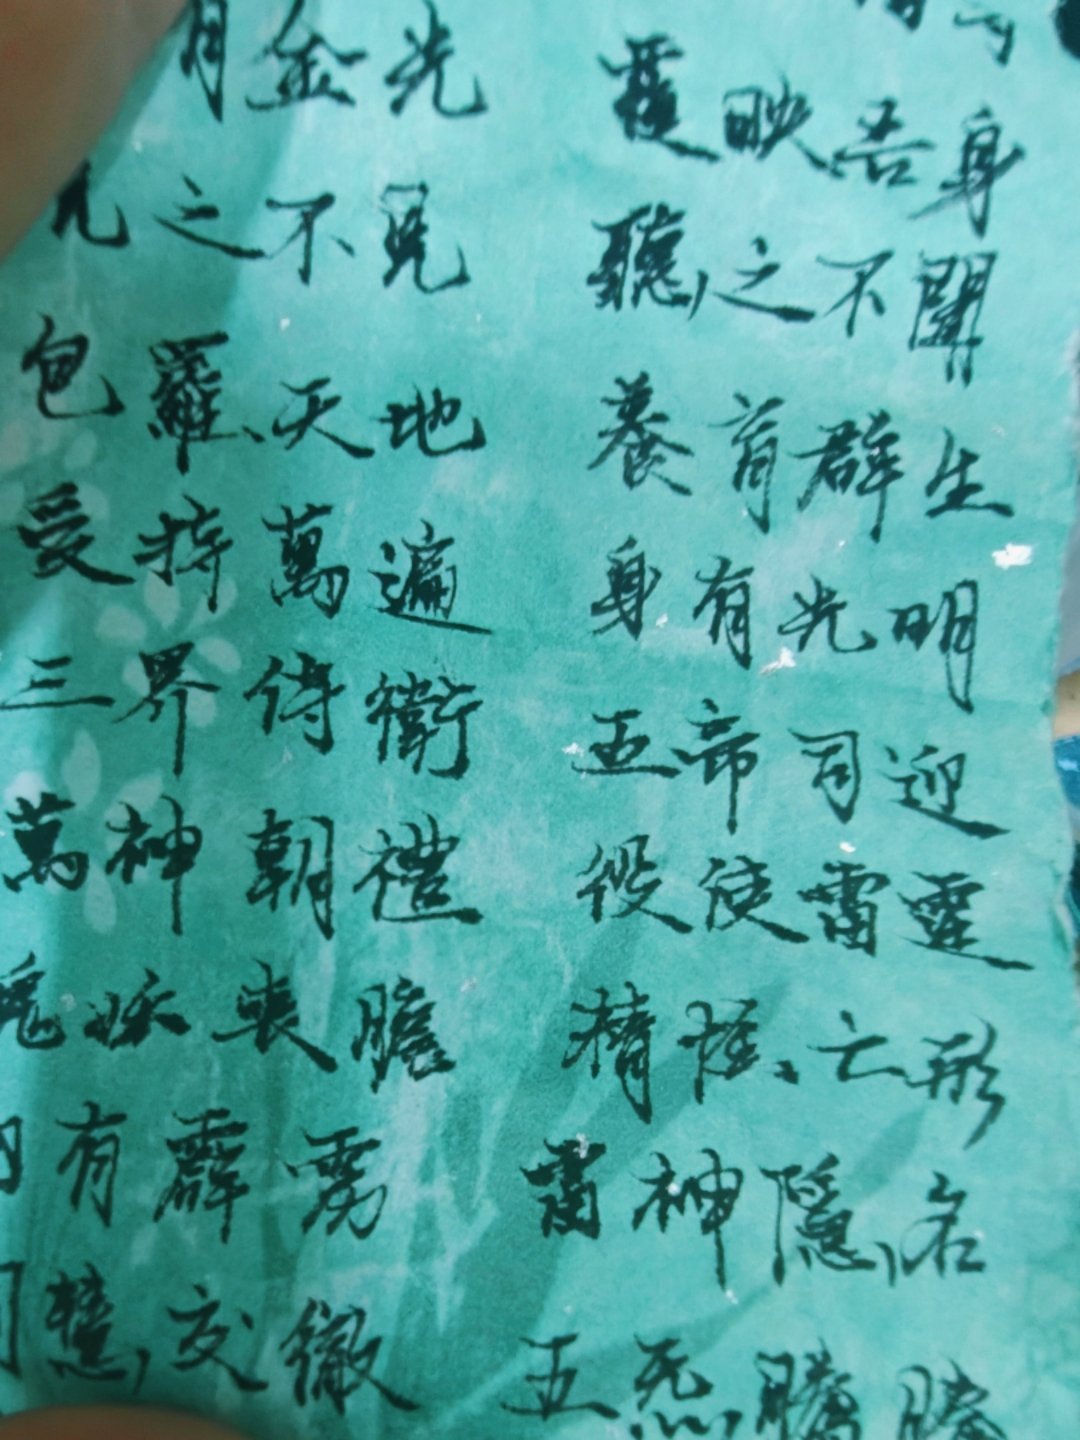 有金光 覆映吾身
視之不見 聽之不聞
包羅天地 養育群生
受持萬遍 身有光明
三界侍衛 五帝司迎
萬神朝禮 役使雷霆
鬼妖喪膽 精怪亡形
內有霹靂 雷神隱名
洞慧交徹 五炁騰騰